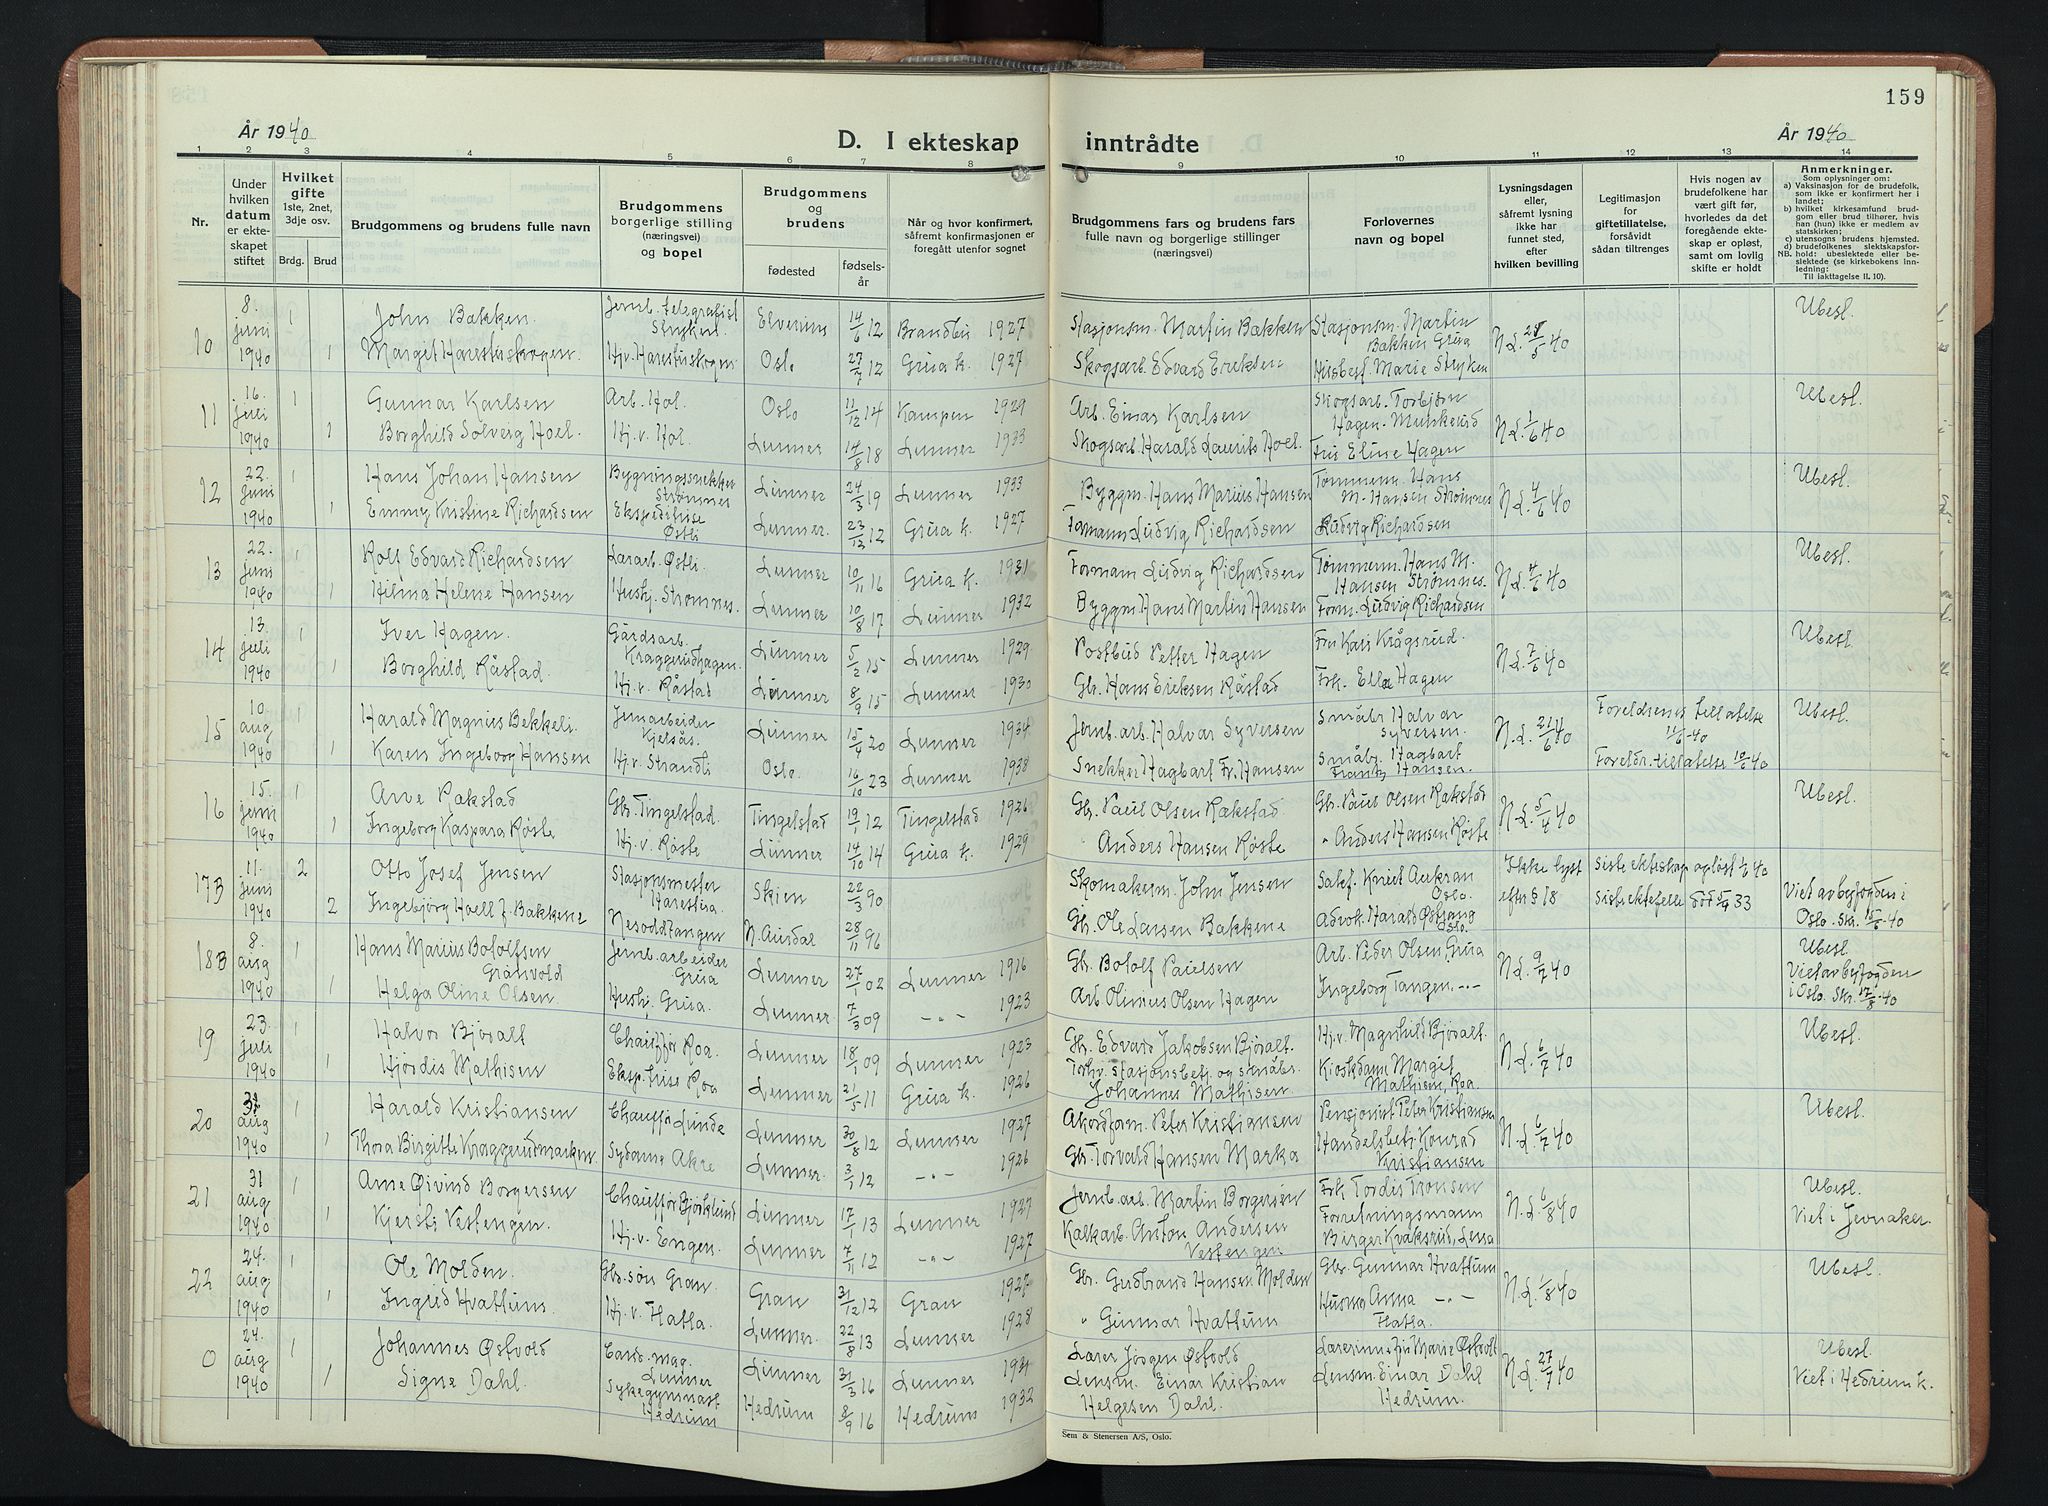 159
År 1940
D. I ekteskap inntrådte
År 1940
1 2 3 4 5 6 7 8 9 10 11 12 13 14
Nr.
Under hvilken datum er ekteskapet stiftet
Hvilket gifte 1ste, 2net, 3dje osv.
Brdg. Brud
Brudgommens og brudens fulle navn
Brudgommens borgerlige stilling (næringsvei) og bopel
Brudgommens og brudens
fødested
fødselsår
Når og hvor konfirmert, såfremt konfirmasjonen er foregått utenfor sognet
Brudgommens fars og brudens fars fulle navn og borgerlige stillinger (næringsvei)
Forlovernes navn og bopel
Lysningsdagen eller, såfremt lysning ikke har funnet sted, efter hvilken bevilling
Legitimasjon for giftetillatelse, forsåvidt sådan tiltrenges
Hvis nogen av brudefolkene har vært gift før, hvorledes da det foregående ekteskap er opløst, samt om lovlig skifte er holdt
Anmerkninger.
Som oplysninger om:
a) Vaksinasjon for de brudefolk, som ikke er konfirmert her i landet;
b) hvilket kirkesamfund brudgom eller brud tilhører, hvis han (hun) ikke er medlem av statskirken;
c) utensogns brudens hjemsted.
d) brudefolkenes slektskapsforhold: ubeslektede eller beslektede (se kirkebokens innledning:
NB. Til iakttagelse II. 10).
10 8. juni 1940 1 John Bakken Jernb. telegrafist Stryken Elverum 14/6 12 Brandbu 1927 Stasjonsm. Martin Bakken Stasjonsm. Martin Bakken Grua N.L. 40 Ubesl.
1 Margit Harestuskogen. Hj.v. Harestuskogen Oslo 27/7 12 Grua k. 1927 Skogsarb. Edvard Eriksen Husbest. Marie Stryken
11 16. juli 1940 1 Gunnar Karlsen Arb. Hol. Oslo 11/12 14 Kampen 1929 Arb. Einar Karlsen Skogsarb. Torbjörn Hagen N.L. 1/6 40 Ubesl.
1 Borghild Solveig Hoel. Hj.v. Hol. Lunner 14/8 18 Lunner 1933 Skogsarb. Harald Laurits Hoel. Fru Eline Hagen
12 22. juni 1940 1 Hans Johan Hansen Bygningssnekker Strømnes Lunner 24/3 19 Lunner 1933 Byggm. Hans Marius Hansen Tømmerm. Hans M. Hansen Strømnes N.L. 4/6 40 Ubesl.
1 Emmy Kristine Richardsen Ekspeditrise Østli Lunner. 23/12 12 Grua k. 1927 Formann Ludvig Richardsen Ludvig Richardsen
13 22. juni 1940 1 Rolf Edvard Richardsen Østli. Lunner 10/11 16 Grua k. 1931 Formann Ludvig Richardsen Tømmerm. Hans M. Hansen Strømnes. N.L. 4/6 40 Ubesl.
1 Hilma Helene Hansen Hushj. Strømnes. Lunner 10/8 17 Lunner 1932 Byggm Hans Martin Hansen Form. Ludvig Richardsen
14 13. juli 1940 1 Iver Hagen. Gårdsarb. Kraggerudhagen. Lunner 5/2 15 Lunner 1929 Postbud Petter Hagen Fru Kari Krågsrud. N.L. 7/6 40 Ubesl.
1 Borghild Råstad. Hj.v. Råstad Lunner 8/9 15 Lunner 1930 Gbr. Hans Eriksen Råstad Frk. Ella Hagen
15 10 aug 1940 1 Harald Magnus Bekkeli Jernarbeider Kjersås. Lunner 15/4 20 Lunner 1934 Jernb. arb. Halvar Syversen Småbr Halvar Syversen. N.L. 21/6 40 Foreldrenes tillatelse 11/6-40 Ubesl.
1 Karen Ingeborg Hansen Hj.v. Strandli Oslo. 16/10 23 Lunner 1938 Snekker Hagbart Fr. Hansen Småbr. Hagbart Frantz Hansen. Foreldr. tillatelse 10/6 40
16 15. juni 1940 1 Arve Rakstad Gbr. Tingelstad. Tingelstad 19/1 12 Tingelstad 1926 Gbr. Paul Olsen Rakstad Gbr. Paul Olsen Rakstad N.L. 5/4 40 Ubesl.
1 Ingeborg Kaspara Røste Hj.v. Røste Lunner 14/10 14 Grua k. 1929 Anders Hansen Røste " Anders Hansen Røste
17B 11. juni 1940 2 Otto Josef Jensen Stasjonsmester Harestua. Skien 22/3 90 Skomakerm. John Jensen Sakf. Aukran Oslo. Ikke lyst efter § 18 siste ekteskap opløst 1/2 40 Viet av byfogden i Oslo. Skr. 15/6-40
2 Ingebjörg Haell f. Bakkene Nesoddtangen N. Aurdal 28/11 96 Gbr. Ole Larsen Bakkene advok. Harald Østrang Oslo. siste ektefelle død 33
18B 8. aug 1940 1 Hans Marius Bofolfsen Grånvold Jernb. arbeider Grua Lunner 27/1 02 Lunner 1916 Gbr. Bofolf Paulsen Arb. Peder Olsen, Grua N.L. 9/7 40 Ubesl. Viet av byfogden i Oslo. Skr. 17/8-40
1 Helga Oline Olsen Hushj. Grua. Lunner. 7/3 09 -"- 1923 Arb. Olinius Olsen Hagen Ingeborg Tangen. -"-
19 23. juli 1940 1 Halvor Björalt Chauffør Roa. Lunner 18/1 09 Lunner 1923 Gbr. Edvard Jakobsen Björalt. Hj.v. Magnhild Björalt. N.L. 6/7 40 Ubesl.
1 Hjördis Mathisen Eksp.trise Roa Lunner 21/5 11 Grua k. 1926 Torhv. stasjonsbetj. og småbr. Johannes Mathisen Kioskdame Margit Mathisen, Roa
20 31 aug 1940 1 Harald Kristiansen Chauffør Lunde Lunner 30/8 12 Lunner 1927 Akordform. Peter Kristiansen Pensjonist Peter Kristiansen N.L. 6/7 40 Ubesl.
1 Thora Birgitte Kraggerudmarken. Sydame Akre Lunner. 3/1 12 -"- 1926 Gbr. Torvald Hansen Marka Handelsbetj. Konrad Kristiansen
21 31 aug 1940 1 Arne Øivind Borgersen Chauffør Bjørklund Lunner 17/1 13 Lunner 1927 Jernb. arb. Martin Borgersen Frk Tordis Tronsen N.L. 6/8 40 Ubesl. Viet i Jevnaker.
1 Kjersti Vestengen. Hj.v. Engen. Lunner 7/11 12 -"- 1927 Kalkarb. Anton Andersen Vestengen Forretningsmann Birger Kvaksrud, Lena
22 24. aug 1940 1 Ole Molden. Gbr. søn Gran Gran 31/12 12 Gran 1927 Gbr. Gudbrand Hansen Molden Gbr. Gunnar Hvattum N.L. 1/8 40 Ubesl.
1 Ingrid Hvattum. Hj.v. Flatla. Lunner. 22/8 13 Lunner 1928 " Gunnar Hvattum Husmor Anna -"- Flatla.
0 24. aug 1940 1 Johannes Østvold Cand. mag. Lunner Lunner 31/3 16 Lunner 1931 Lærer Jörgen Østvold Lærerinne fru Marie Østvold N.L. 27/7 40 Ubesl. Viet i Hedrum k.
1 Signe Dahl. Sykegymnast Hedrum Hedrum 8/9 16 Hedrum 1932 Lensm. Einar Kristian Helgesen Dahl. Lensm. Einar Dahl Hedrum.
Sem & Stenersen A/S, Oslo.